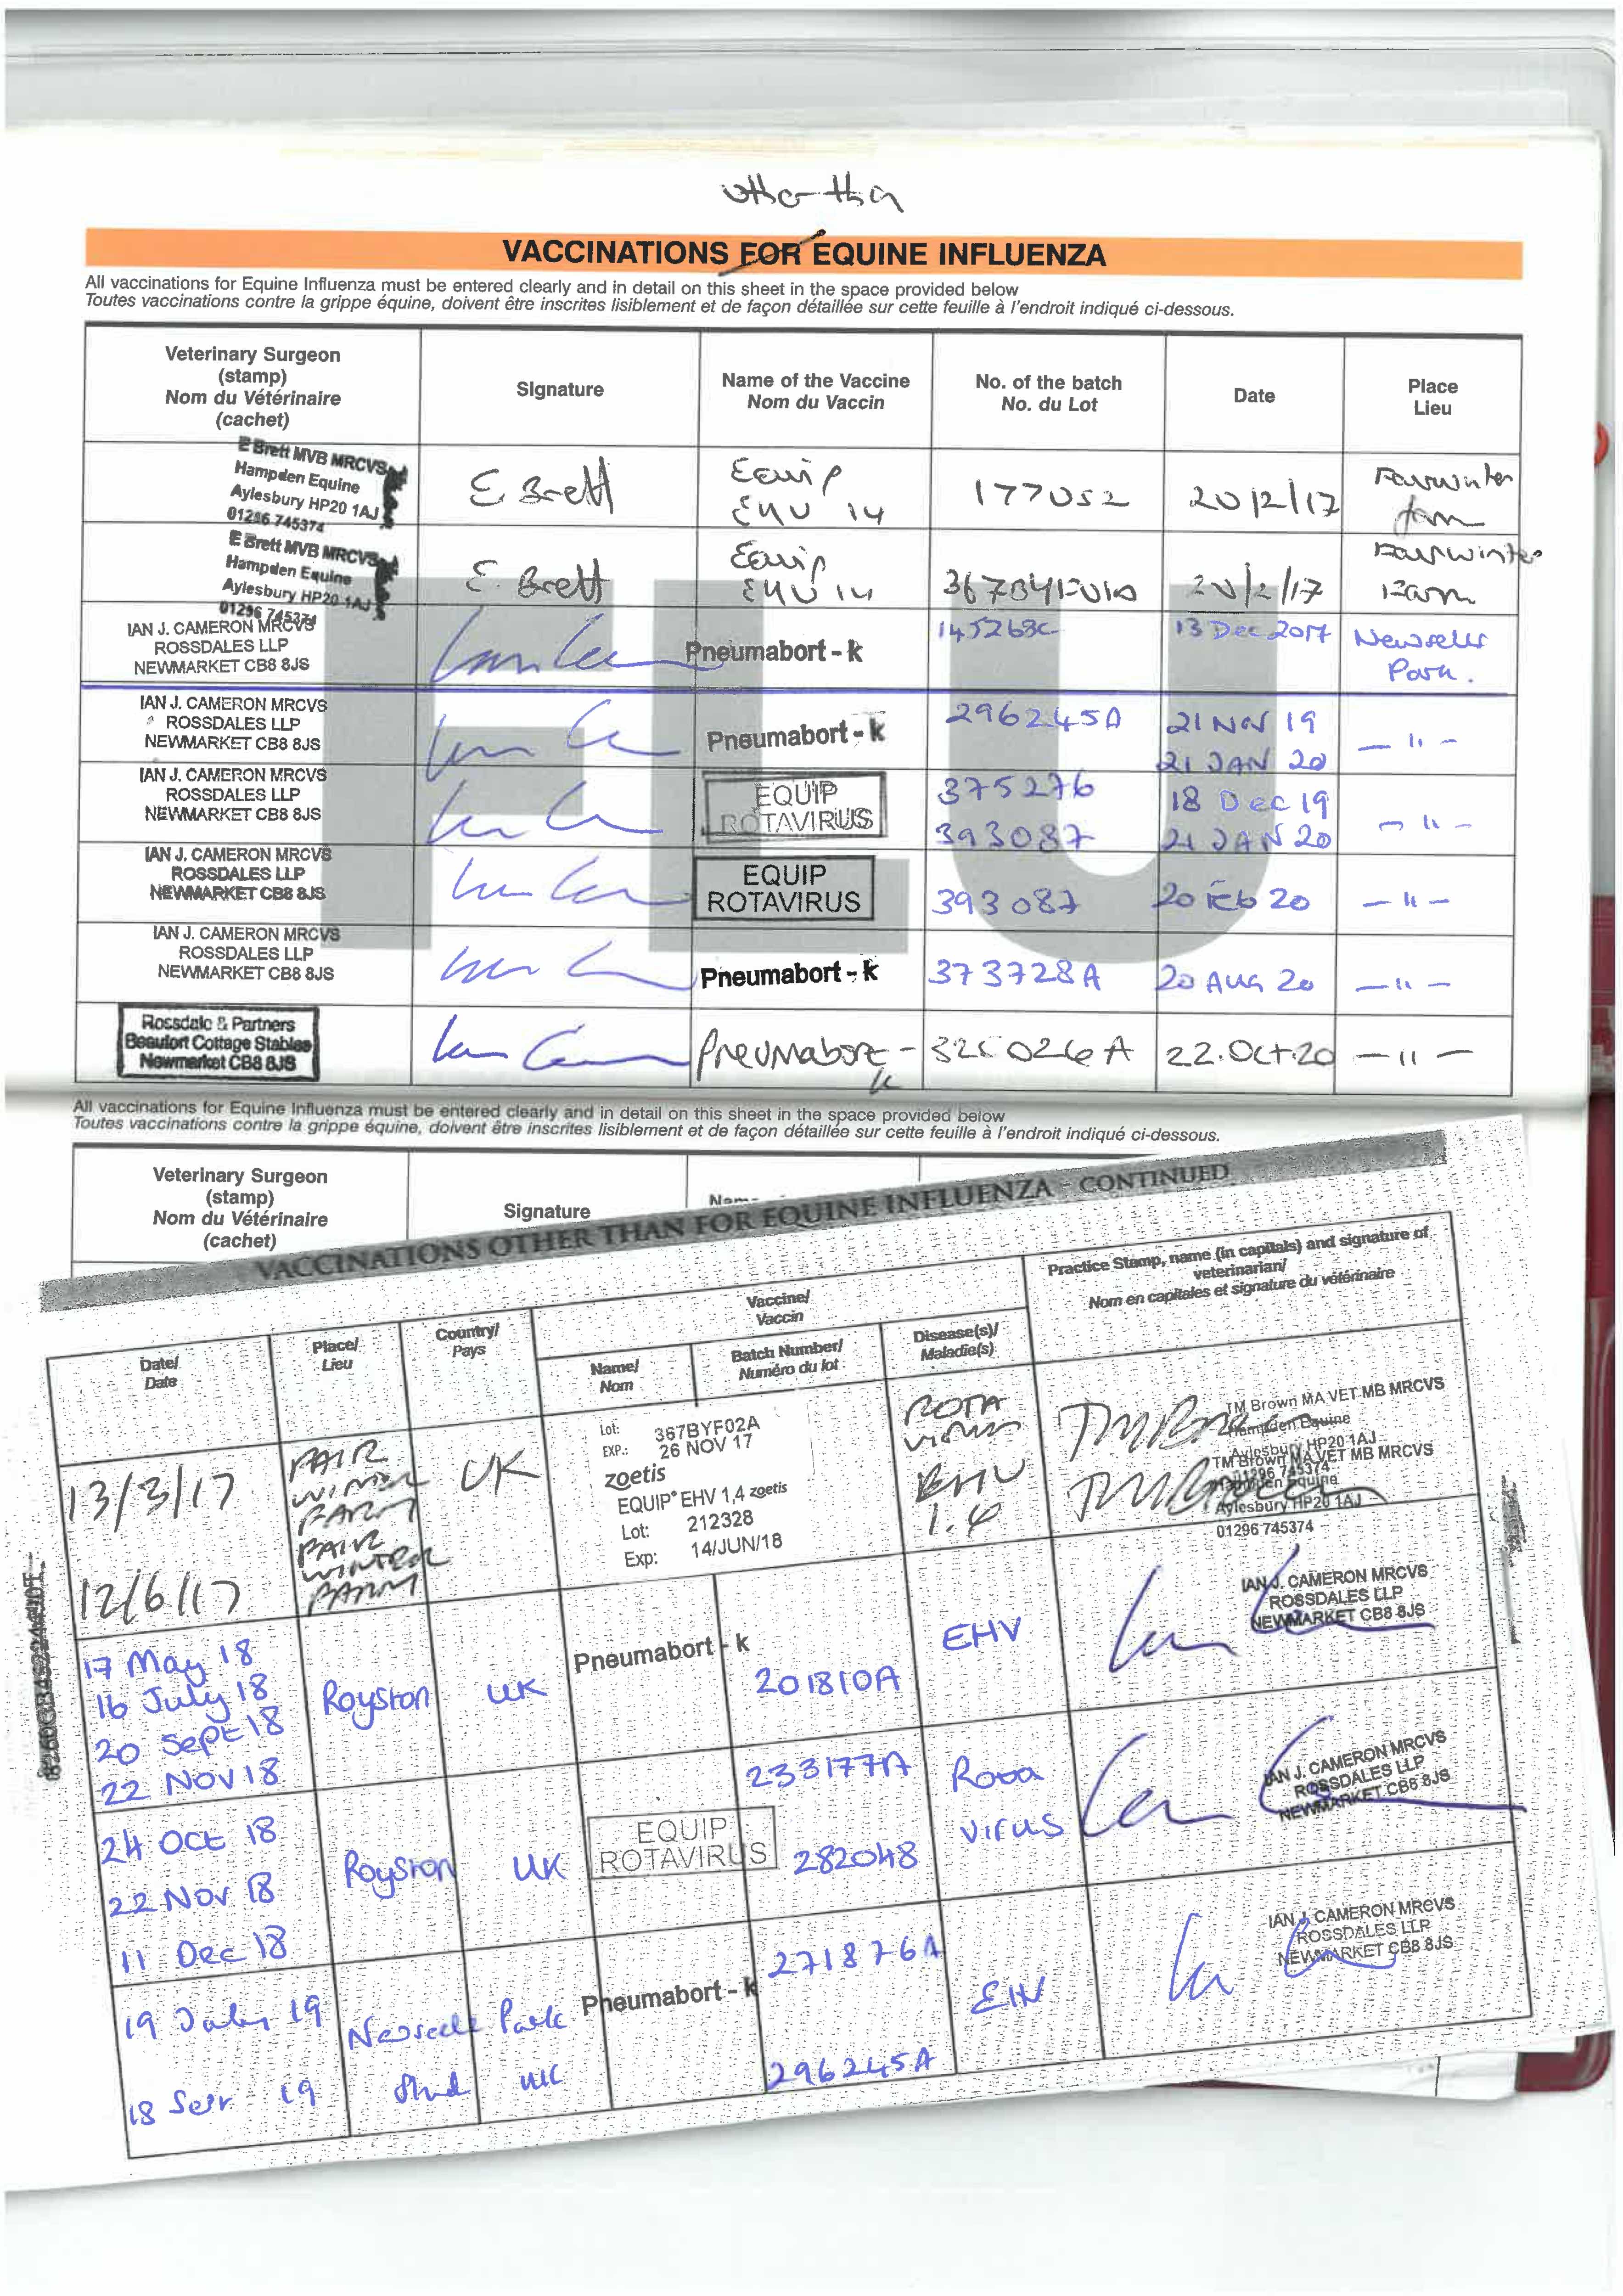 other than
VACCINATIONS FOR EQUINE INFLUENZA
All vaccinations for Equine Influenza must be entered clearly and in detail on this sheet in the space provided below
Toutes vaccinations contre la grippe équine, doivent être inscrites lisiblement et de façon détaillée sur cette feuille à l'endroit indiqué ci-dessous.
Veterinary Surgeon
(stamp)
Nom du Vétérinaire
(cachet)
Signature
Name of the Vaccine
Nom du Vaccin
No. of the batch
No. du Lot
Date
Place
Lieu
FLU
E Brett MVB MRCVS
Hampden Equine
Aylesbury HP20 1AJ
01296 745374
E Brett
Equip
EHV 14
177052
20/2/17
Fairwinter
farm
E Brett MVB MRCVS
Hampden Equine
Aylesbury HP20 1AJ
01296 745374
E. Brett
Equip
EHV 14
20/2/17
Fairwinter
Farm
IAN J. CAMERON MRCVS
ROSSDALES LLP
NEWMARKET CB8 8JS
Pneumabort - k
145268C
13 Dec 2017
Newsells
Park.
IAN J. CAMERON MRCVS
ROSSDALES LLP
NEWMARKET CB8 8JS
Pneumabort - k
296245A
21 NOV 19
21 JAN 20
— " —
IAN J. CAMERON MRCVS
ROSSDALES LLP
NEWMARKET CB8 8JS
EQUIP
ROTAVIRUS
375276
393087
18 Dec 19
21 JAN 20
— " —
IAN J. CAMERON MRCVS
ROSSDALES LLP
NEWMARKET CB8 8JS
EQUIP
ROTAVIRUS
393087
20 Feb 20
— " —
IAN J. CAMERON MRCVS
ROSSDALES LLP
NEWMARKET CB8 8JS
Pneumabort - k
373728A
20 AUG 20
— " —
Rossdale & Partners
Beaufort Cottage Stables
Newmarket CB8 8JS
Pneumabort -
k
326026A
22.Oct.20
— " —
All vaccinations for Equine Influenza must be entered clearly and in detail on this sheet in the space provided below
Toutes vaccinations contre la grippe équine, doivent être inscrites lisiblement et de façon détaillée sur cette feuille à l'endroit indiqué ci-dessous.
Veterinary Surgeon
(stamp)
Nom du Vétérinaire
(cachet)
Signature
VACCINATIONS OTHER THAN FOR EQUINE INFLUENZA - CONTINUED
Date/
Date
Place/
Lieu
Country/
Pays
Vaccine/
Vaccin
Name/
Nom
Batch Number/
Numéro du lot
Disease(s)/
Maladie(s)
Practice Stamp, name (in capitals) and signature of
veterinarian/
Nom en capitales et signature du vétérinaire
13/3/17
FAIR
WINTER
FARM
UK
Lot: 367BYF02A
EXP.: 26 NOV 17
zoetis
ROTA
VIRUS
TM Brown MA VET MB MRCVS
Hampden Equine
Aylesbury HP20 1AJ
01296 745374
12/6/17
FAIR
WINTER
FARM
EQUIP® EHV 1,4 zoetis
Lot: 212328
Exp: 14/JUN/18
EHV
1.4
TM Brown MA VET MB MRCVS
Hampden Equine
Aylesbury HP20 1AJ
01296 745374
17 May 18
16 July 18
20 Sept 18
22 NOV 18
Royston
UK
Pneumabort - k
201810A
233177A
EHV
IAN J. CAMERON MRCVS
ROSSDALES LLP
NEWMARKET CB8 8JS
24 OCT 18
22 Nov 18
11 Dec 18
Royston
UK
EQUIP
ROTAVIRUS
282048
Rota
virus
IAN J. CAMERON MRCVS
ROSSDALES LLP
NEWMARKET CB8 8JS
19 July 19
18 Sept 19
Newsells Park
Stud UK
Pneumabort - k
271876A
296245A
EHV
IAN J. CAMERON MRCVS
ROSSDALES LLP
NEWMARKET CB8 8JS